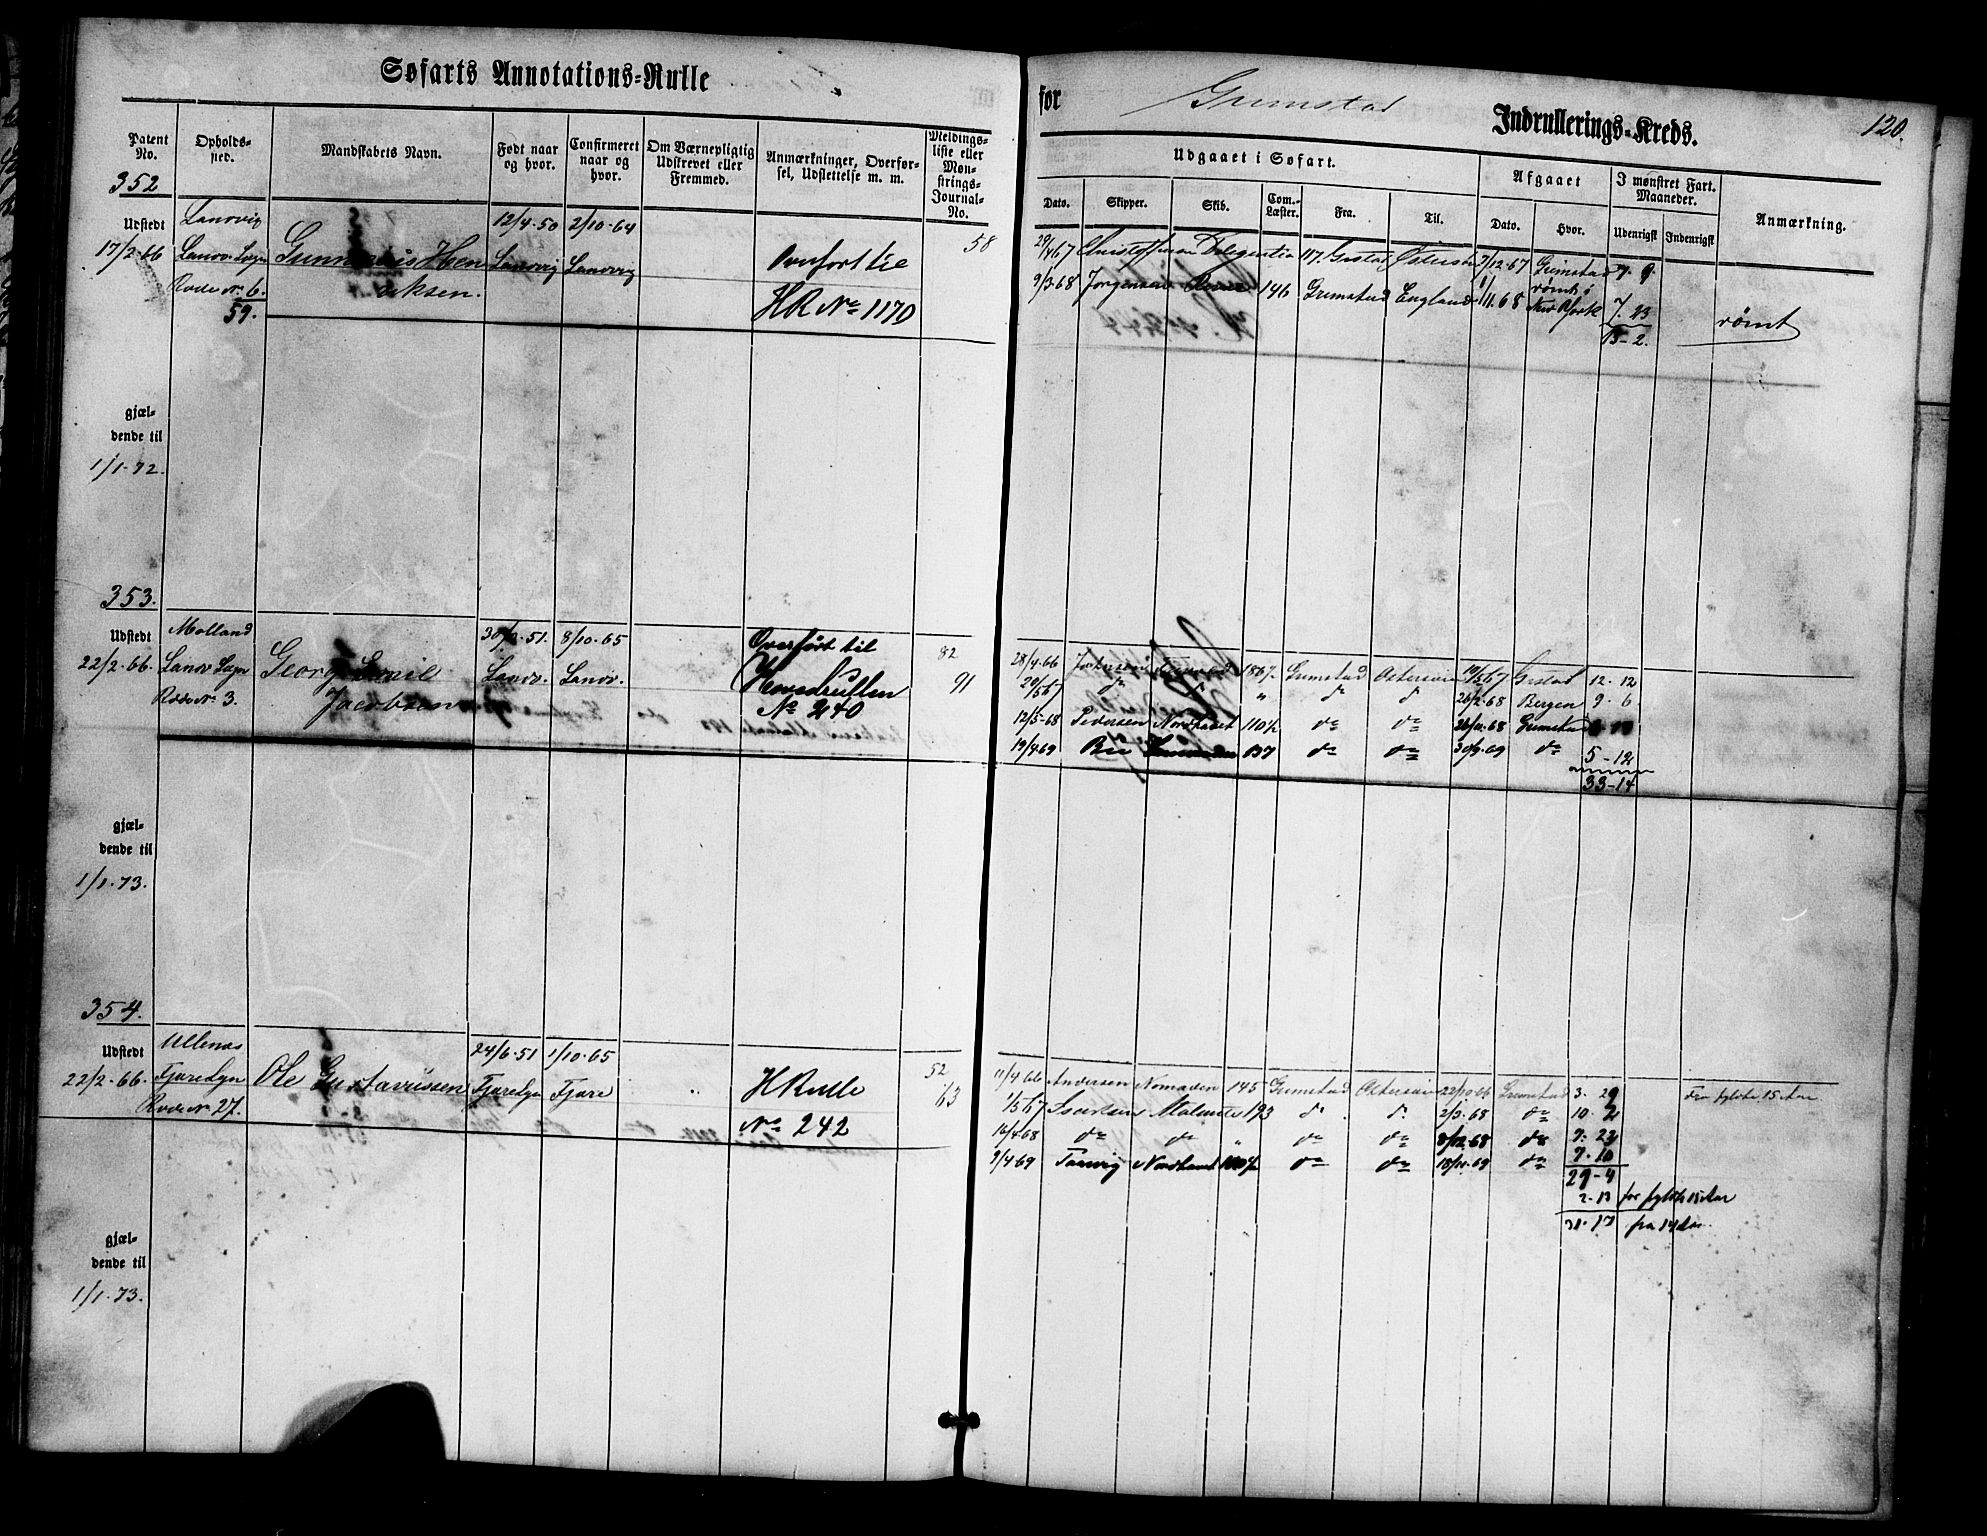 Søfarts Annotations-Rulle
for Grimstad Indrullerings-Kreds. 120.
Patent No.
Opholds-sted.
Mandskabets Navn.
Født naar og hvor.
Confirmeret naar og hvor.
Om Værnepligtig Udskrevet eller Fremmed.
Anmærkninger, Overførsel, Udslettelse m. m.
Meldings-liste eller Mønstrings-Journal-No.
Udgaaet i Søfart.
Afgaaet
I mønstret Fart. Maaneder.
Anmærkning.
Dato. Skipper. Skib. Com. Læster. Fra. Til. Dato. Hvor. Udenrigst Indenrigst
352
Udstedt 17/2-66
Landvig
Landv. Sogn
Rode No. 6.
59.
12/4-50 2/10-64
Landvig Landvig
Overført til
HR No 1170
58
29/4 67 Christophersen 117. Grstad 7/12-67 Grimstad 7. 9.
9/3-68 Jørgensen 146 Grimstad England 11.68 rømt i New York 7. 23
15-2.
rømt
gjæl-
dende til
1/1-72.
353.
Udstedt 22/2-66.
Molland
Landv. Sogn
Rode No 3.
Georg Emil
Jacobsen
51. 8/10-65
Landv. Landv.
Overført til
Hovedrullen
No 240
82
91
28/4-66 Grimstad Østersøen 67 Grstad 12-12
67 do " do do 26/2-68 Bergen 9-6
12/5-68 Pedersen Nordhavet 110½ do do 68 Grimstad
19/4 69 137 do do 30/9-69 do 5-12
33-14
gjæl-
dende til
1/1-73.
354.
Udstedt 22/2-66.
Ullenæs
Fjære Sogn
Rode No 27.
Ole Gustavussen
24/6-51 1/10-65
Fjære Sgn Fjære
"
H Rulle
No 242
52
63
11/4 66 Andersen Nomaden 145 Grimstad Østersøen 22/10-66 Grimstad 3. 29 før fyldte 15 Aar
1/5 67 Isaksen 173 do do 2/3-68 do 10. 2
16/4 68 do do " do do 8/12-68 do 7. 23
9/4 69 do do 18/10-69 do 7. 10
29-4
2-13 før fyldte 15 Aar
31-17 fra 14 Aar.
gjæl-
dende til
1/1-73.